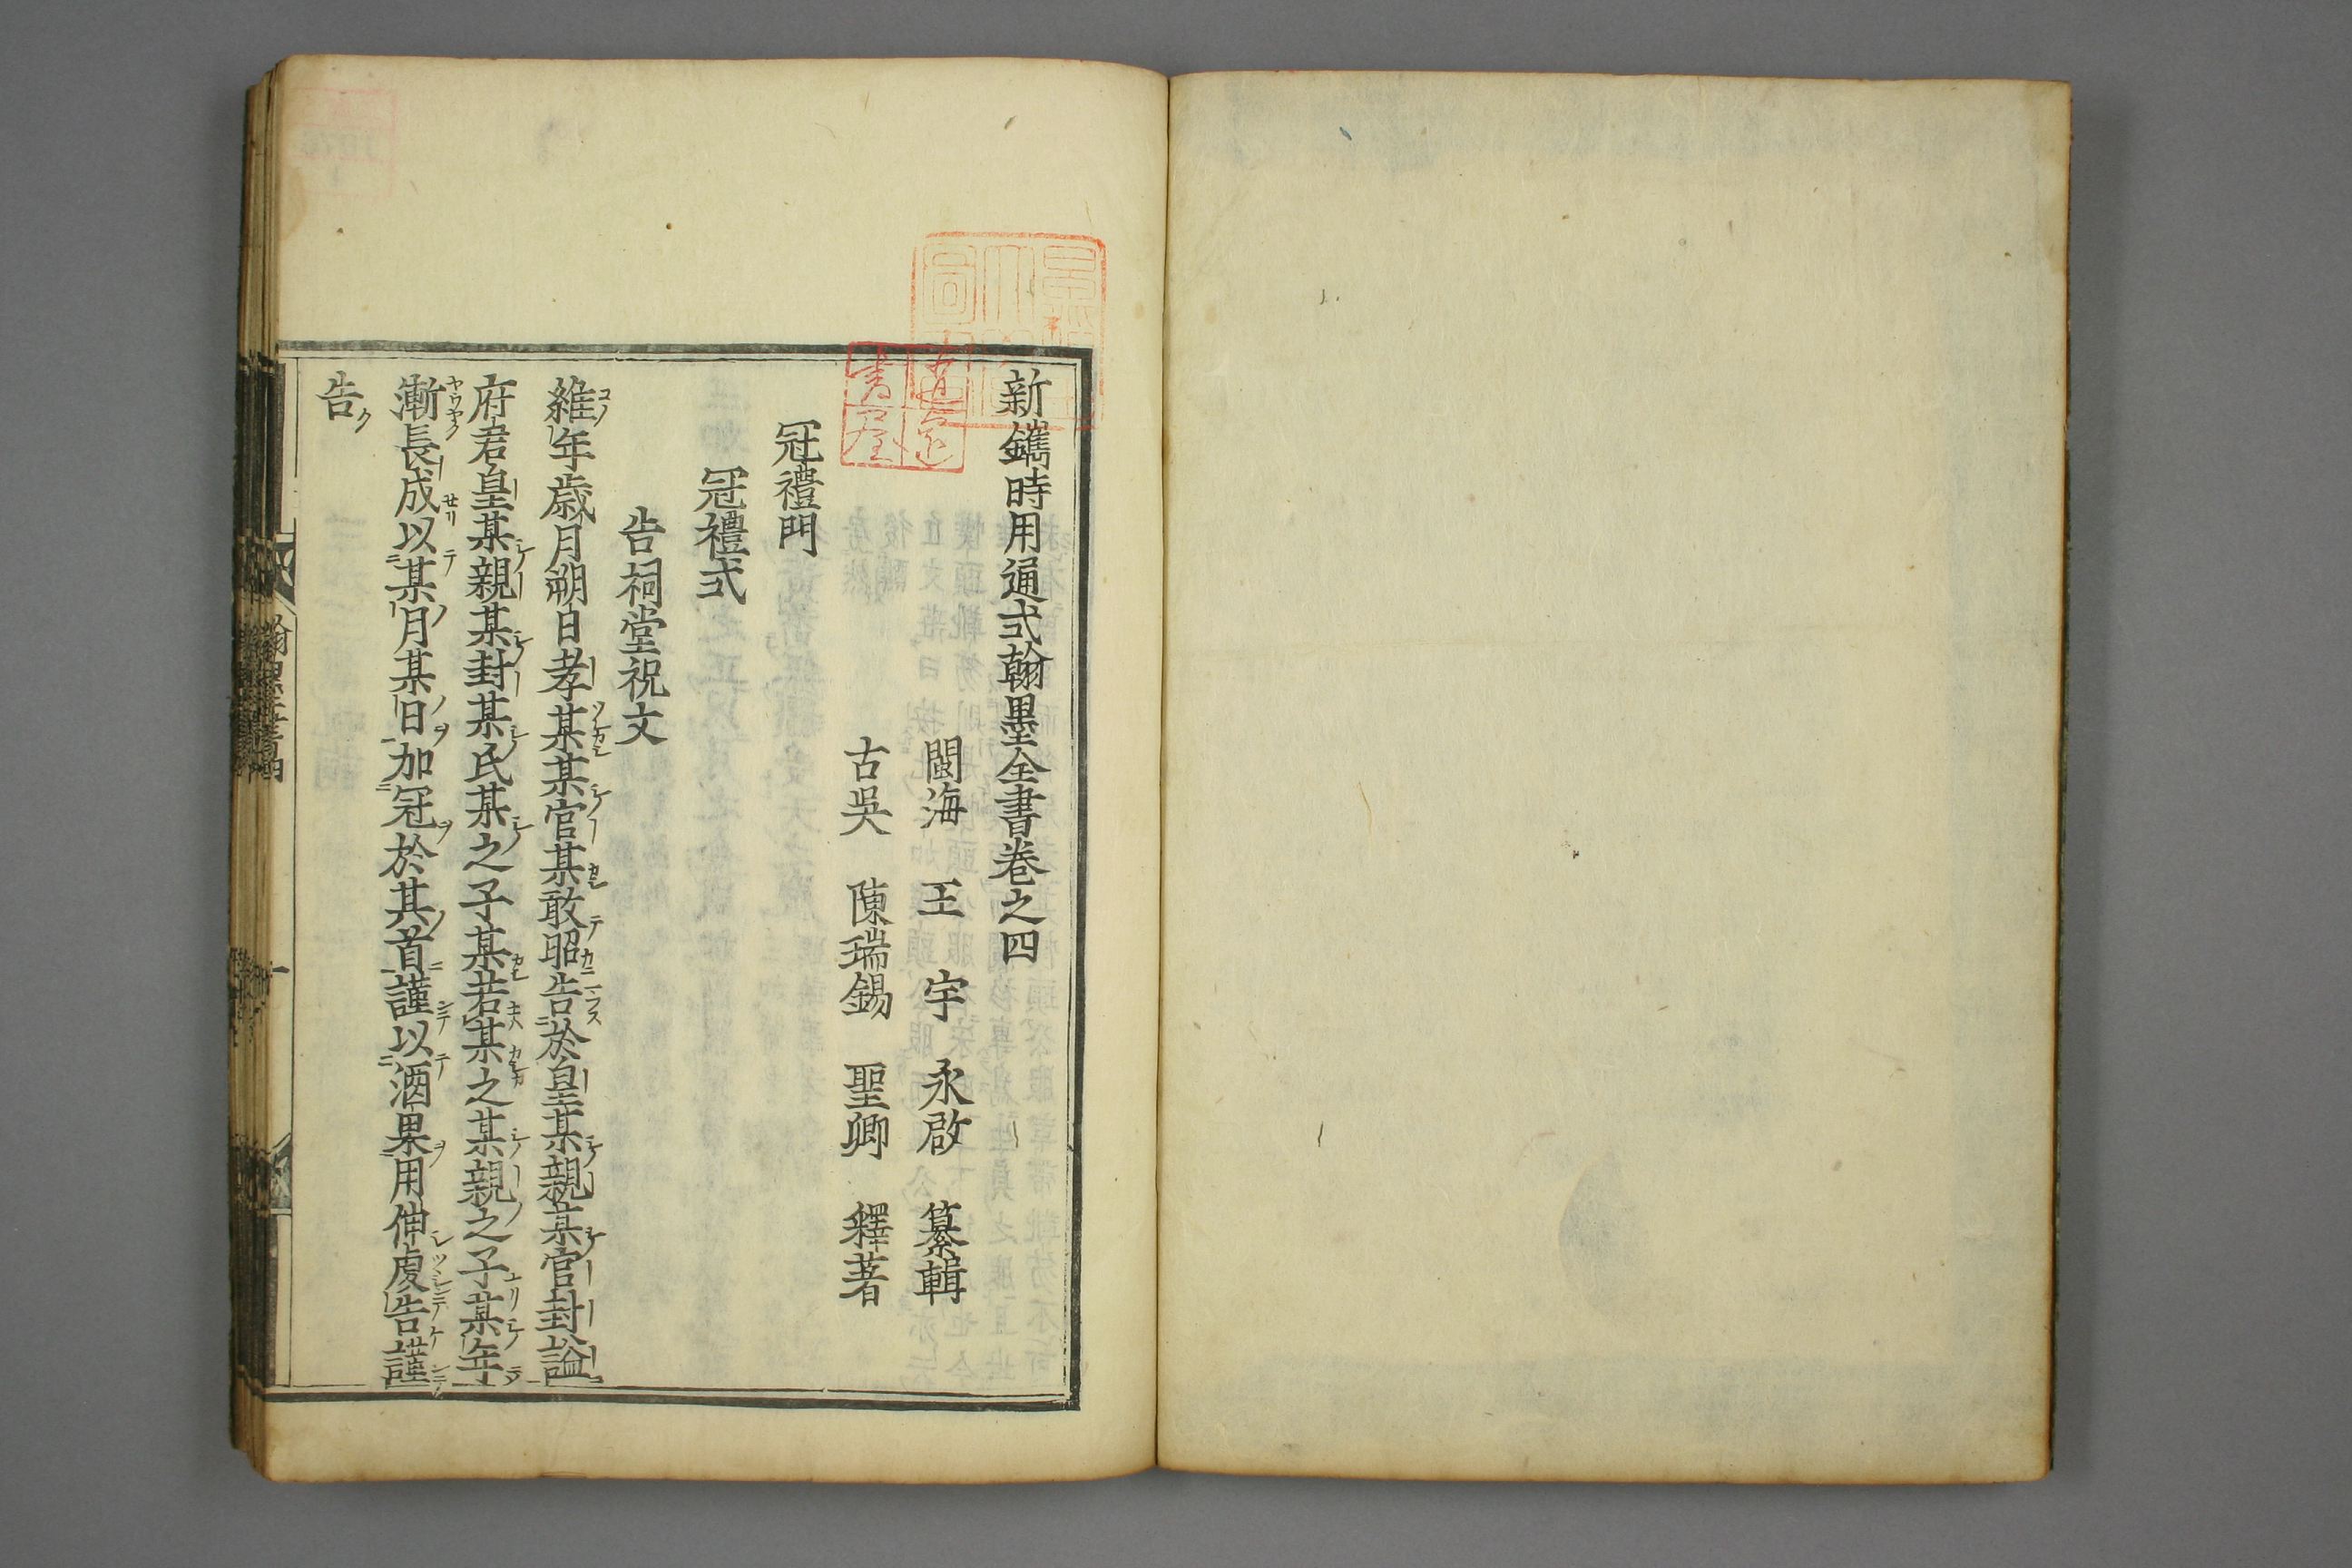 新鐫時用通式翰墨全書卷之四
閩海 王 宇 永啟 纂輯
古吳 陳瑞錫 聖卿 釋著
冠禮門
冠禮式
告祠堂祝文
維年歲月朔日孝某某官某敢昭告於皇某親某官封謚
府君皇某親某封某氏某之子某若某之某親之子某年
漸長成以某月某日加冠於其首謹以酒果用伸虔告謹
告